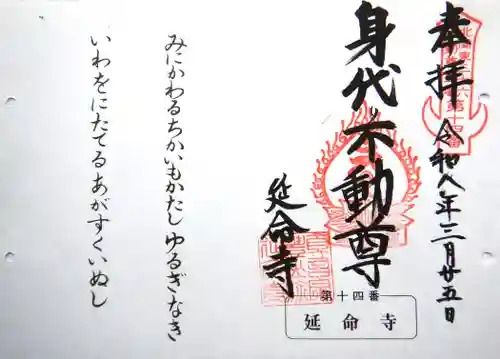 奉拝
令和八年三月廿五日
身代り不動尊
延命寺
第十四番
延命寺
みにかわるちかいもかたし ゆるぎなき
いわをにたてるあがすくいぬし